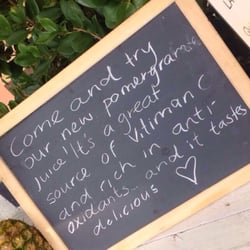 Come and try
our new pomergranate
Juice! It's a great
source of Vitiman C
and rich in anti-
oxidants... and it tastes
delicious ♡